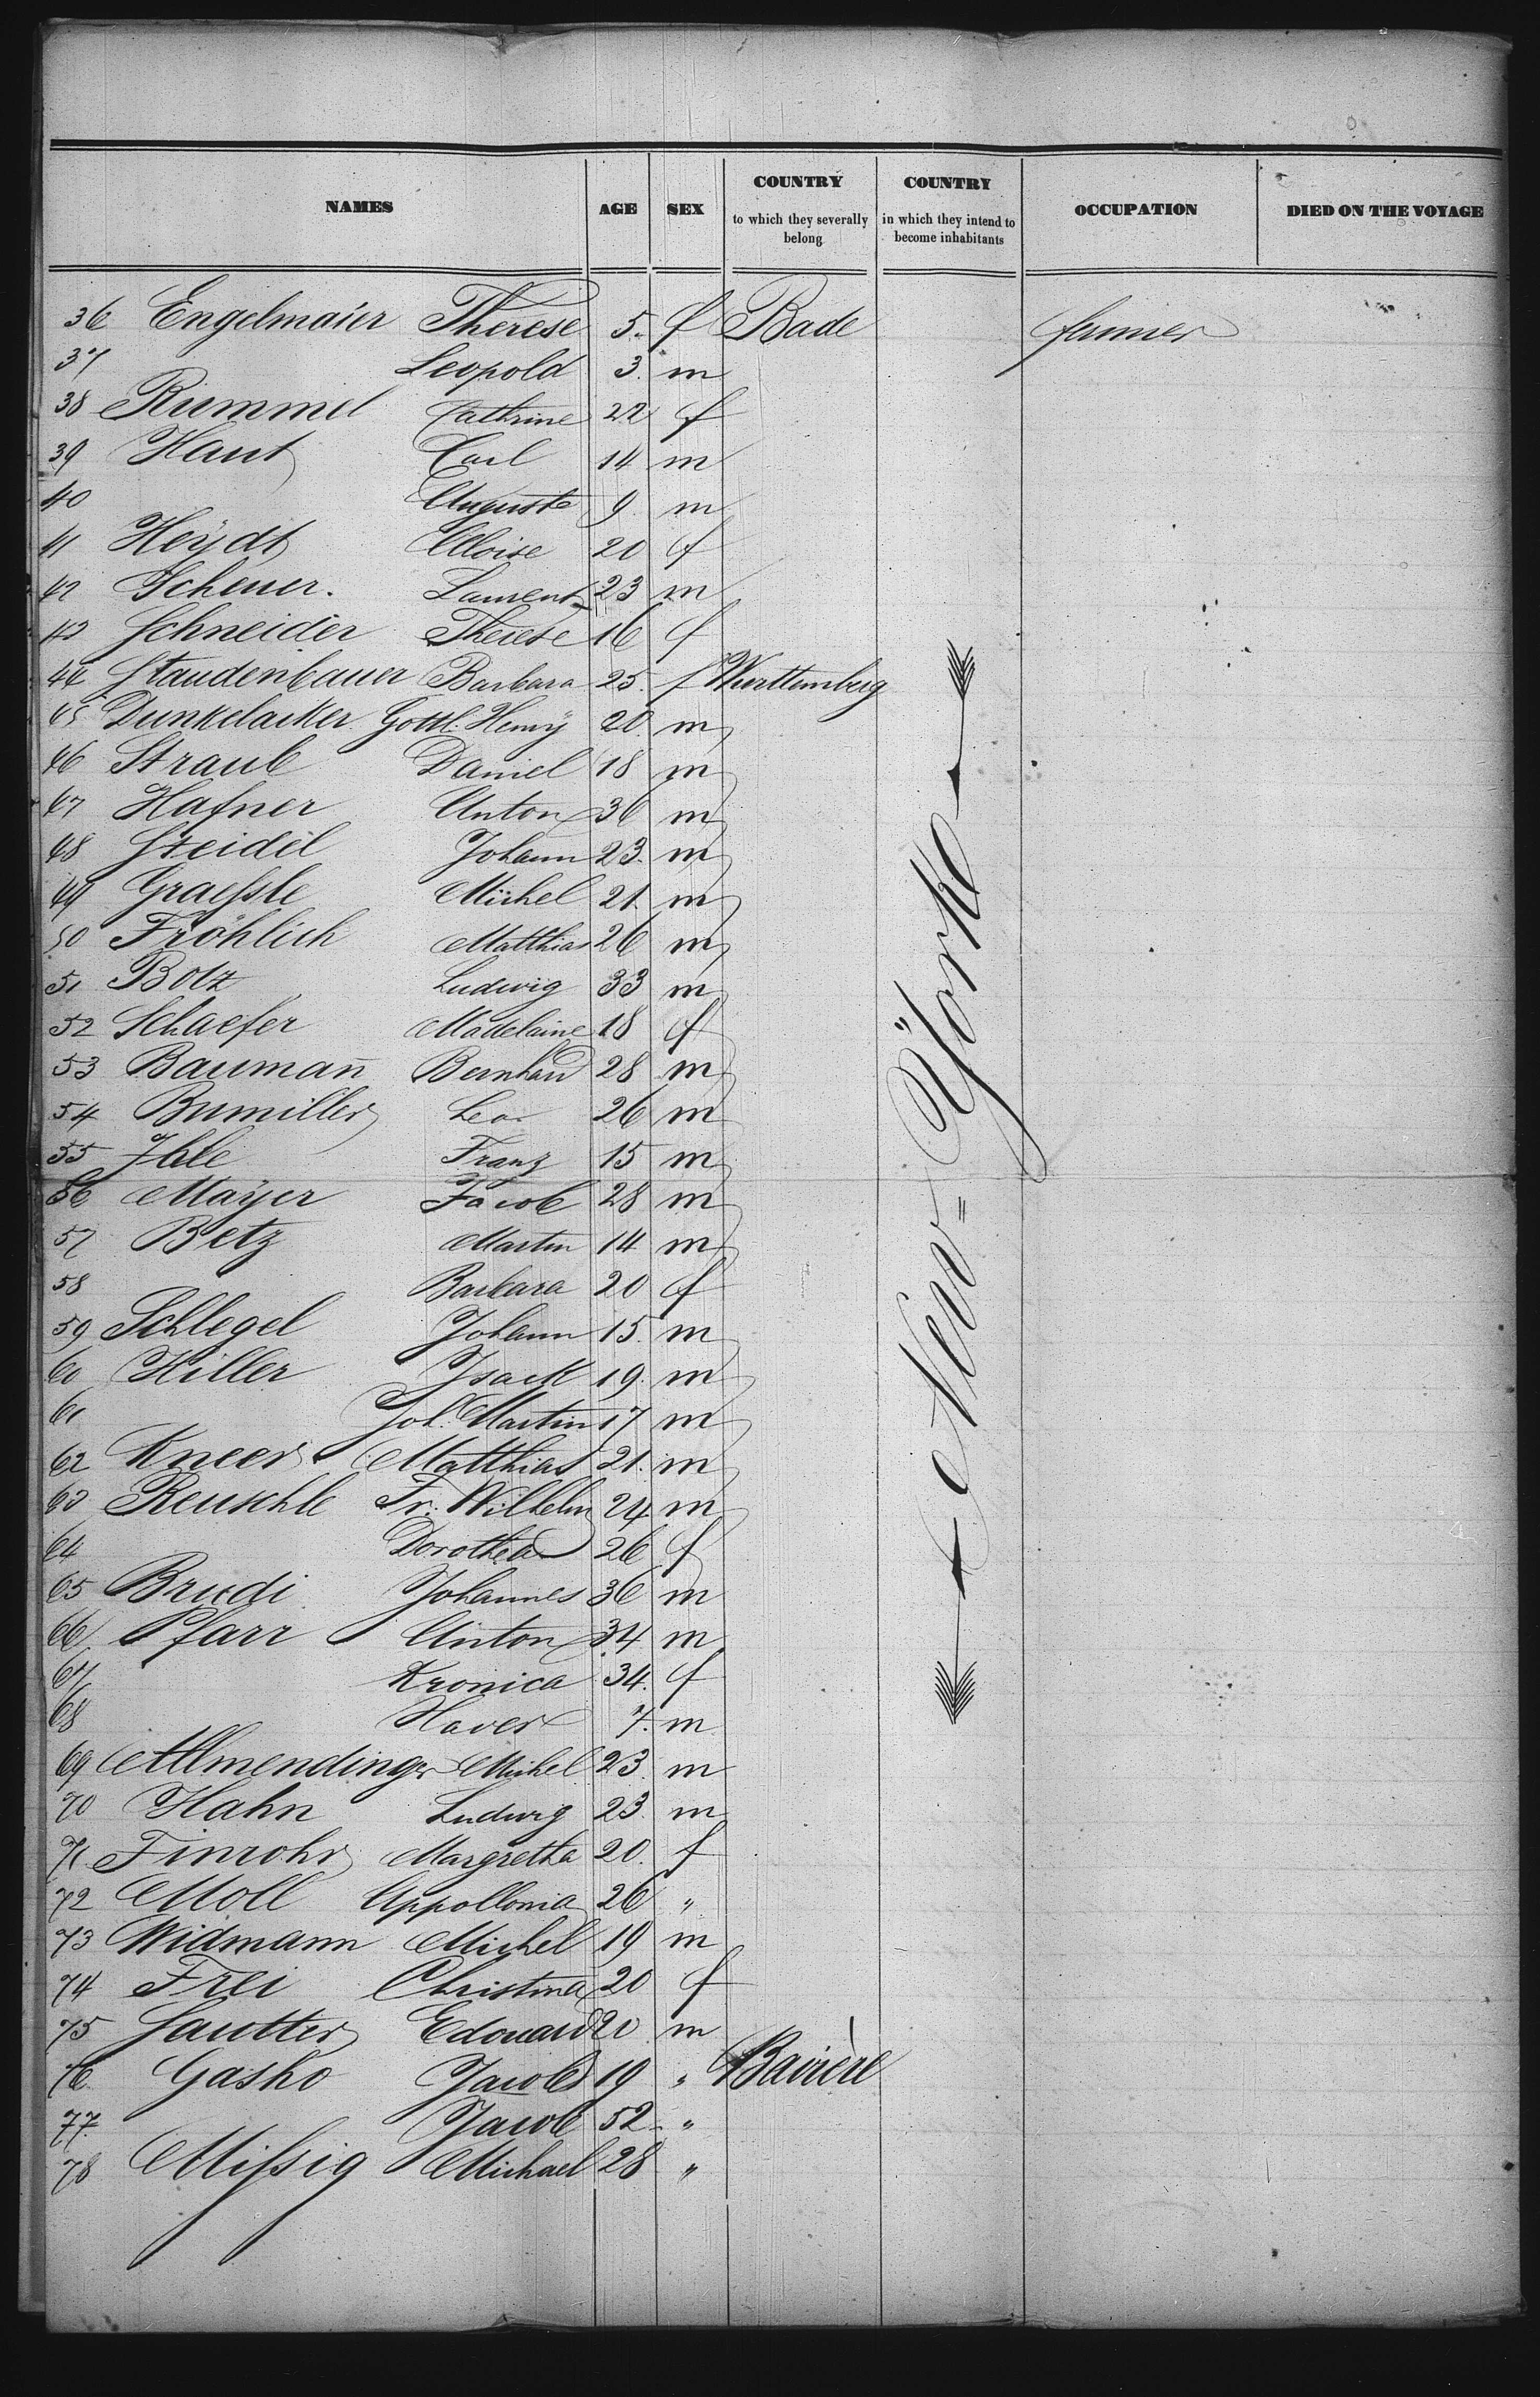 NAMES AGE SEX COUNTRY to which they severally belong COUNTRY in which they intend to become inhabitants OCCUPATION DIED ON THE VOYAGE
36 Engelmaier Therese 5. f Bade farmer
37 Leopold 3. m
38 Rummel Cathrine 22 f
39 Haut Carl 14 m
40 Auguste 9. m
41 Heÿdt Aloise 20 f
42 Scheuer. Laurent 23 m
43 Schneider Therese 16 f
44 Staudenbauer Barbara 25. f Wurttemberg
45 Dunkelacker Gottl. Henrÿ 20. m
46 Straub Daniel 18 m
47 Hafner Anton 36 m
48 Steidel Johann 23. m
49 Graessle Michel 21. m
50 Fröhlich Matthias 26 m
51 Botz Ludwig 33 m
52 Schaefer Madelaine 18 f
53 Baumañ Bernhard 28 m
54 Bumiller Leo 26 m
55 Ihle Franz 15 m
56 Maÿer Jacob 28 m
57 Betz Martin 14 m
58 Barbara 20 f
59 Schlegel Johann 15. m
60 Hiller Isack 19. m
61 Joh. Martin 17 m
62 Kneer Matthias 21. m
63 Reuschle Fr. Wilhelm 24 m
64 Dorothea 26 f
65 Brudi Johannes 36 m
66 Pfarr Anton 34 m
67 Kronica 34. f
68 Haver 7. m
69 Allmendinger Michel 23. m
70 Hahn Ludwig 23. m
71 Finrohr Margretha 20. f
72 Moll Appollonia 26 "
73 Widmann Michel 19 m
74 Frei Christina 20 f
75 Sautter Edouard 20 m
76 Gasho Jacob 19 " Bavière
77. Jacob 52 "
78 Missig Michael 28 "
New=Ÿork